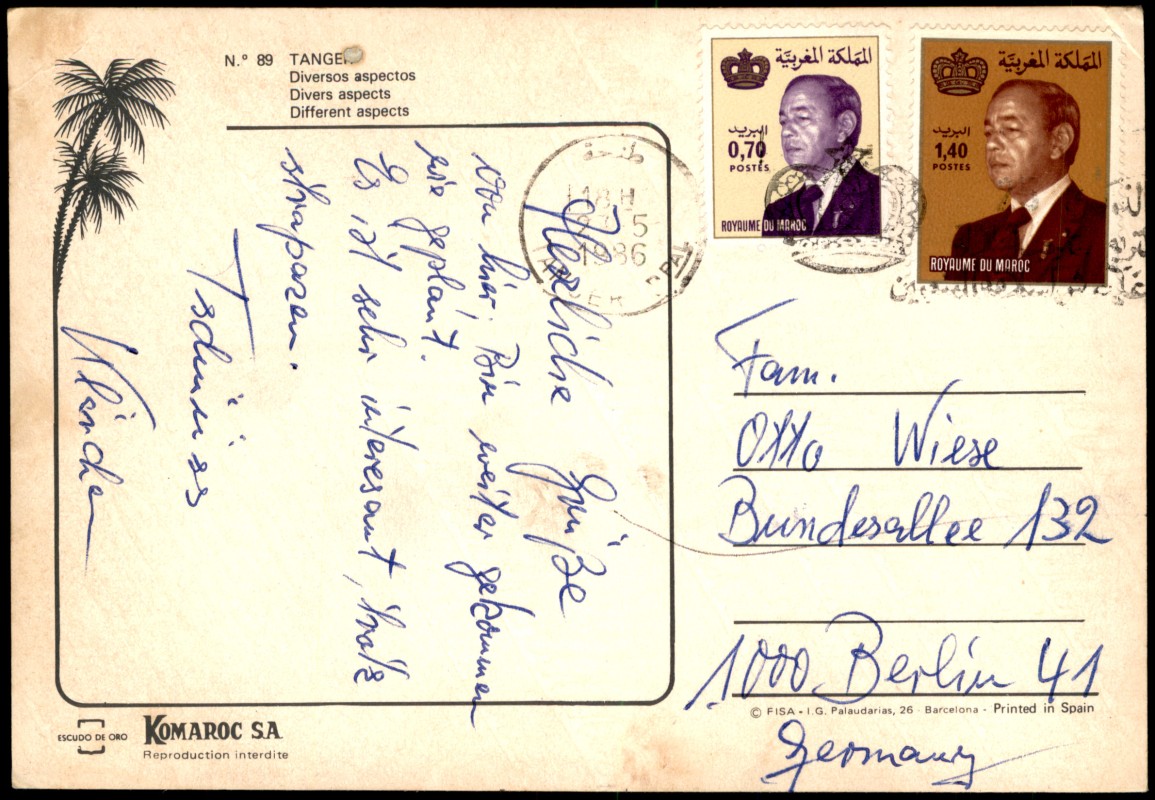 N.º 89 TANGER
Diversos aspectos
Divers aspects
Different aspects
Herzliche Grüße
von hier. Bin weiter gekommen
wie geplant.
Es ist sehr interesant, trotz
strapazen.
Tschüüss
المملكة المغربية
البريد
0,70
POSTES
ROYAUME DU MAROC
المملكة المغربية
البريد
1,40
POSTES
ROYAUME DU MAROC
طنجة
18H
5
1986
TANGER PPAL
Fam.
Otto Wiese
Bundesallee 132
1000 Berlin 41
Germany
ESCUDO DE ORO
KOMAROC S.A.
Reproduction interdite
© FISA - I.G. Palaudarias, 26 - Barcelona - Printed in Spain